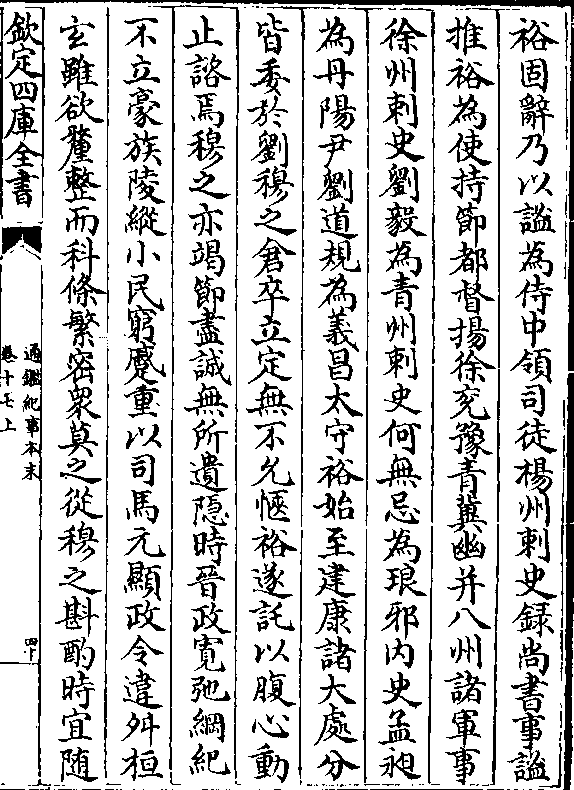 裕固辭乃以謐為侍中領司徒楊州刺史録尚書事謐
推裕為使持節都督揚徐兖豫青冀幽并八州諸軍事
徐州刺史劉毅為青州刺史何無忌為琅邪内史孟昶
為丹陽尹劉道規為義昌太守裕始至建康諸大處分
皆委於劉穆之倉卒立定無不允愜裕遂託以腹心動
止諮焉穆之亦竭節盡誠無所遺隠時晉政寛弛綱紀
不立豪族陵縱小民窮蹙重以司馬元顯政令違舛桓
玄雖欲釐整而科條繁密衆莫之從穆之斟酌時宜随
欽定四庫全書
通鑑紀事本末
卷十七上
四十